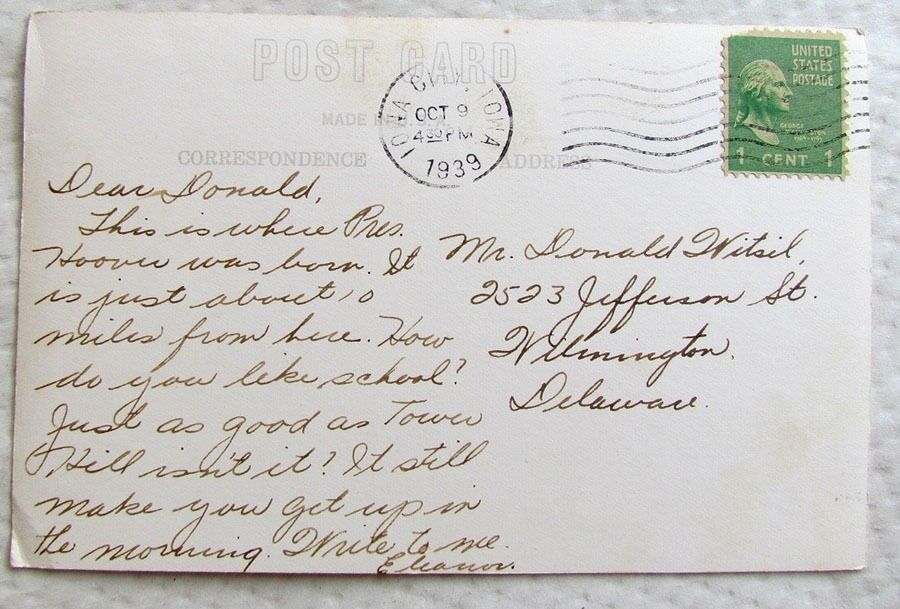 POST CARD
IOWA CITY, IOWA
OCT 9
4 30 PM
1939
UNITED
STATES
POSTAGE
GEORGE
WASHINGTON
1 CENT 1
MADE IN U.S.A.
CORRESPONDENCE
ADDRESS
Dear Donald,
This is where Pres.
Hoover was born. It
is just about 10
miles from here. How
do you like school?
Just as good as Tower
Hill isn't it? It still
make you get up in
the morning. Write to me.
Eleanor.
Mr. Donald Witsil,
2523 Jefferson St.
Wilmington,
Delaware.